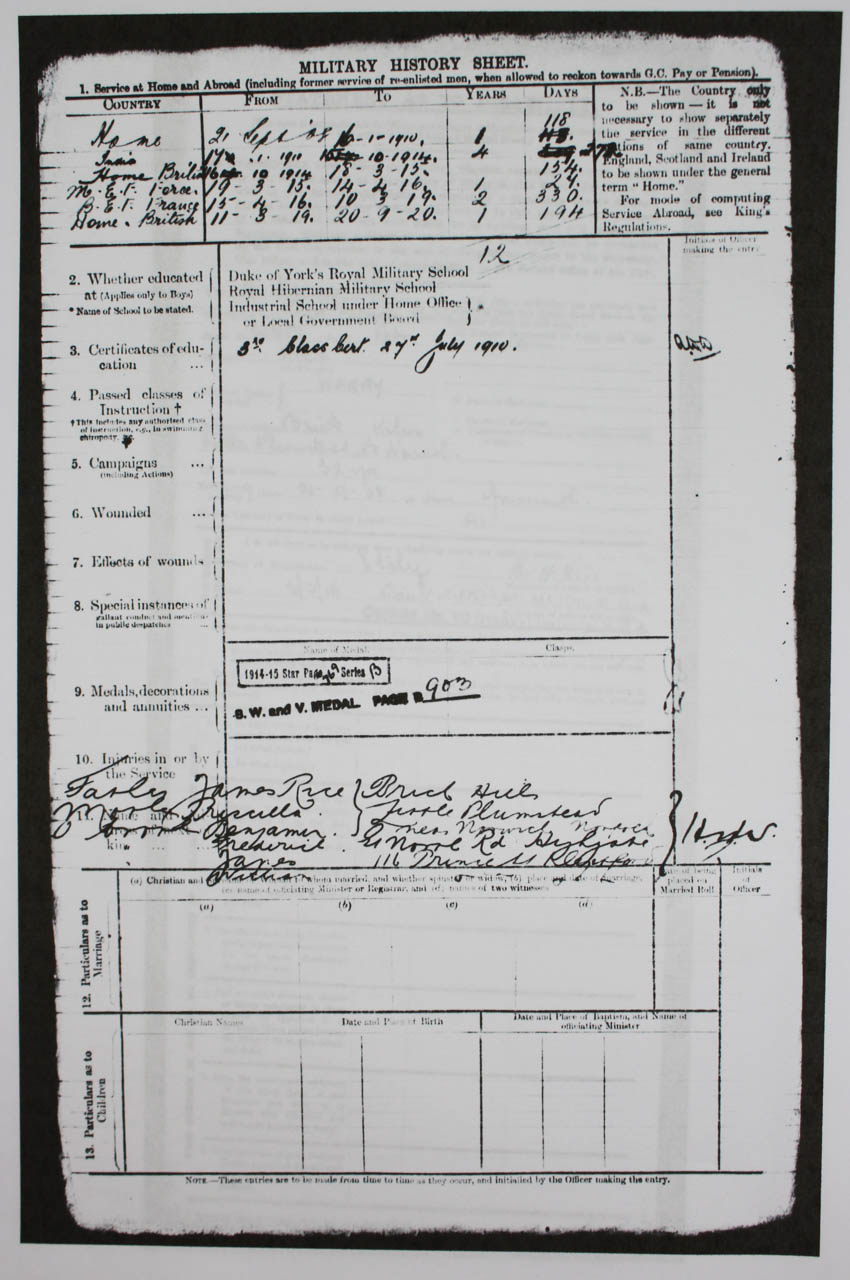 MILITARY HISTORY SHEET.
1. Service at Home and Abroad (including former service of re-enlisted men, when allowed to reckon towards G.C. Pay or Pension).
COUNTRY FROM TO YEARS DAYS
Home 21 Sept '08 16-1-1910. 1 118
India 17 .1. 1911 10-1914. 4
Home British 10 1914 18-3-15. 154.
M.E.F. Force. 19-3-15. 14-4 16. 1 29.
B.E.F. France 15-4-16. 10 3 19. 2 330.
Home. British 11-3-19. 20-9-20. 1 194
N.B.—The Country only
to be shown—it is not
necessary to show separately
the service in the different
stations of same country.
England, Scotland and Ireland
to be shown under the general
term "Home."
For mode of computing
Service Abroad, see King's
Regulations.
Initials of Officer
making the entry
12
2. Whether educated
at (Applies only to Boys)
* Name of School to be stated.
Duke of York's Royal Military School
Royal Hibernian Military School
Industrial School under Home Office
or Local Government Board
3. Certificates of edu-
cation ...
3rd Class Cert. 27th July 1910.
4. Passed classes of
Instruction †
† This includes any authorised class
of instruction, e.g., in swimming
chiropody, &c.
5. Campaigns ...
(including Actions)
6. Wounded ...
7. Effects of wounds
8. Special instances of
gallant conduct and mentions
in public despatches ...
Name of Medal. Clasps.
9. Medals, decorations
and annuities ...
1914-15 Star Page Series B
B. W. and V. MEDAL PAGE B 903
10. Injuries in or by
the Service
James Rice Brick Hills
Priscilla Little Plumstead
Benjamin. near Norwich Norfolk
Frederick Rd
James 116 Prince St
William
11. Name and
kin ...
(a) Christian and whom married, and whether spinster or widow, (b) place and date of marriage,
(c) name of officiating Minister or Registrar, and (d) names of two witnesses
Date of being
placed on
Married Roll
Initials
of
Officer
(a) (b) (c) (d)
12. Particulars as to
Marriage
Christian Names Date and Place of Birth Date and Place of Baptism, and Name of
officiating Minister
13. Particulars as to
Children
NOTE.—These entries are to be made from time to time as they occur, and initialled by the Officer making the entry.